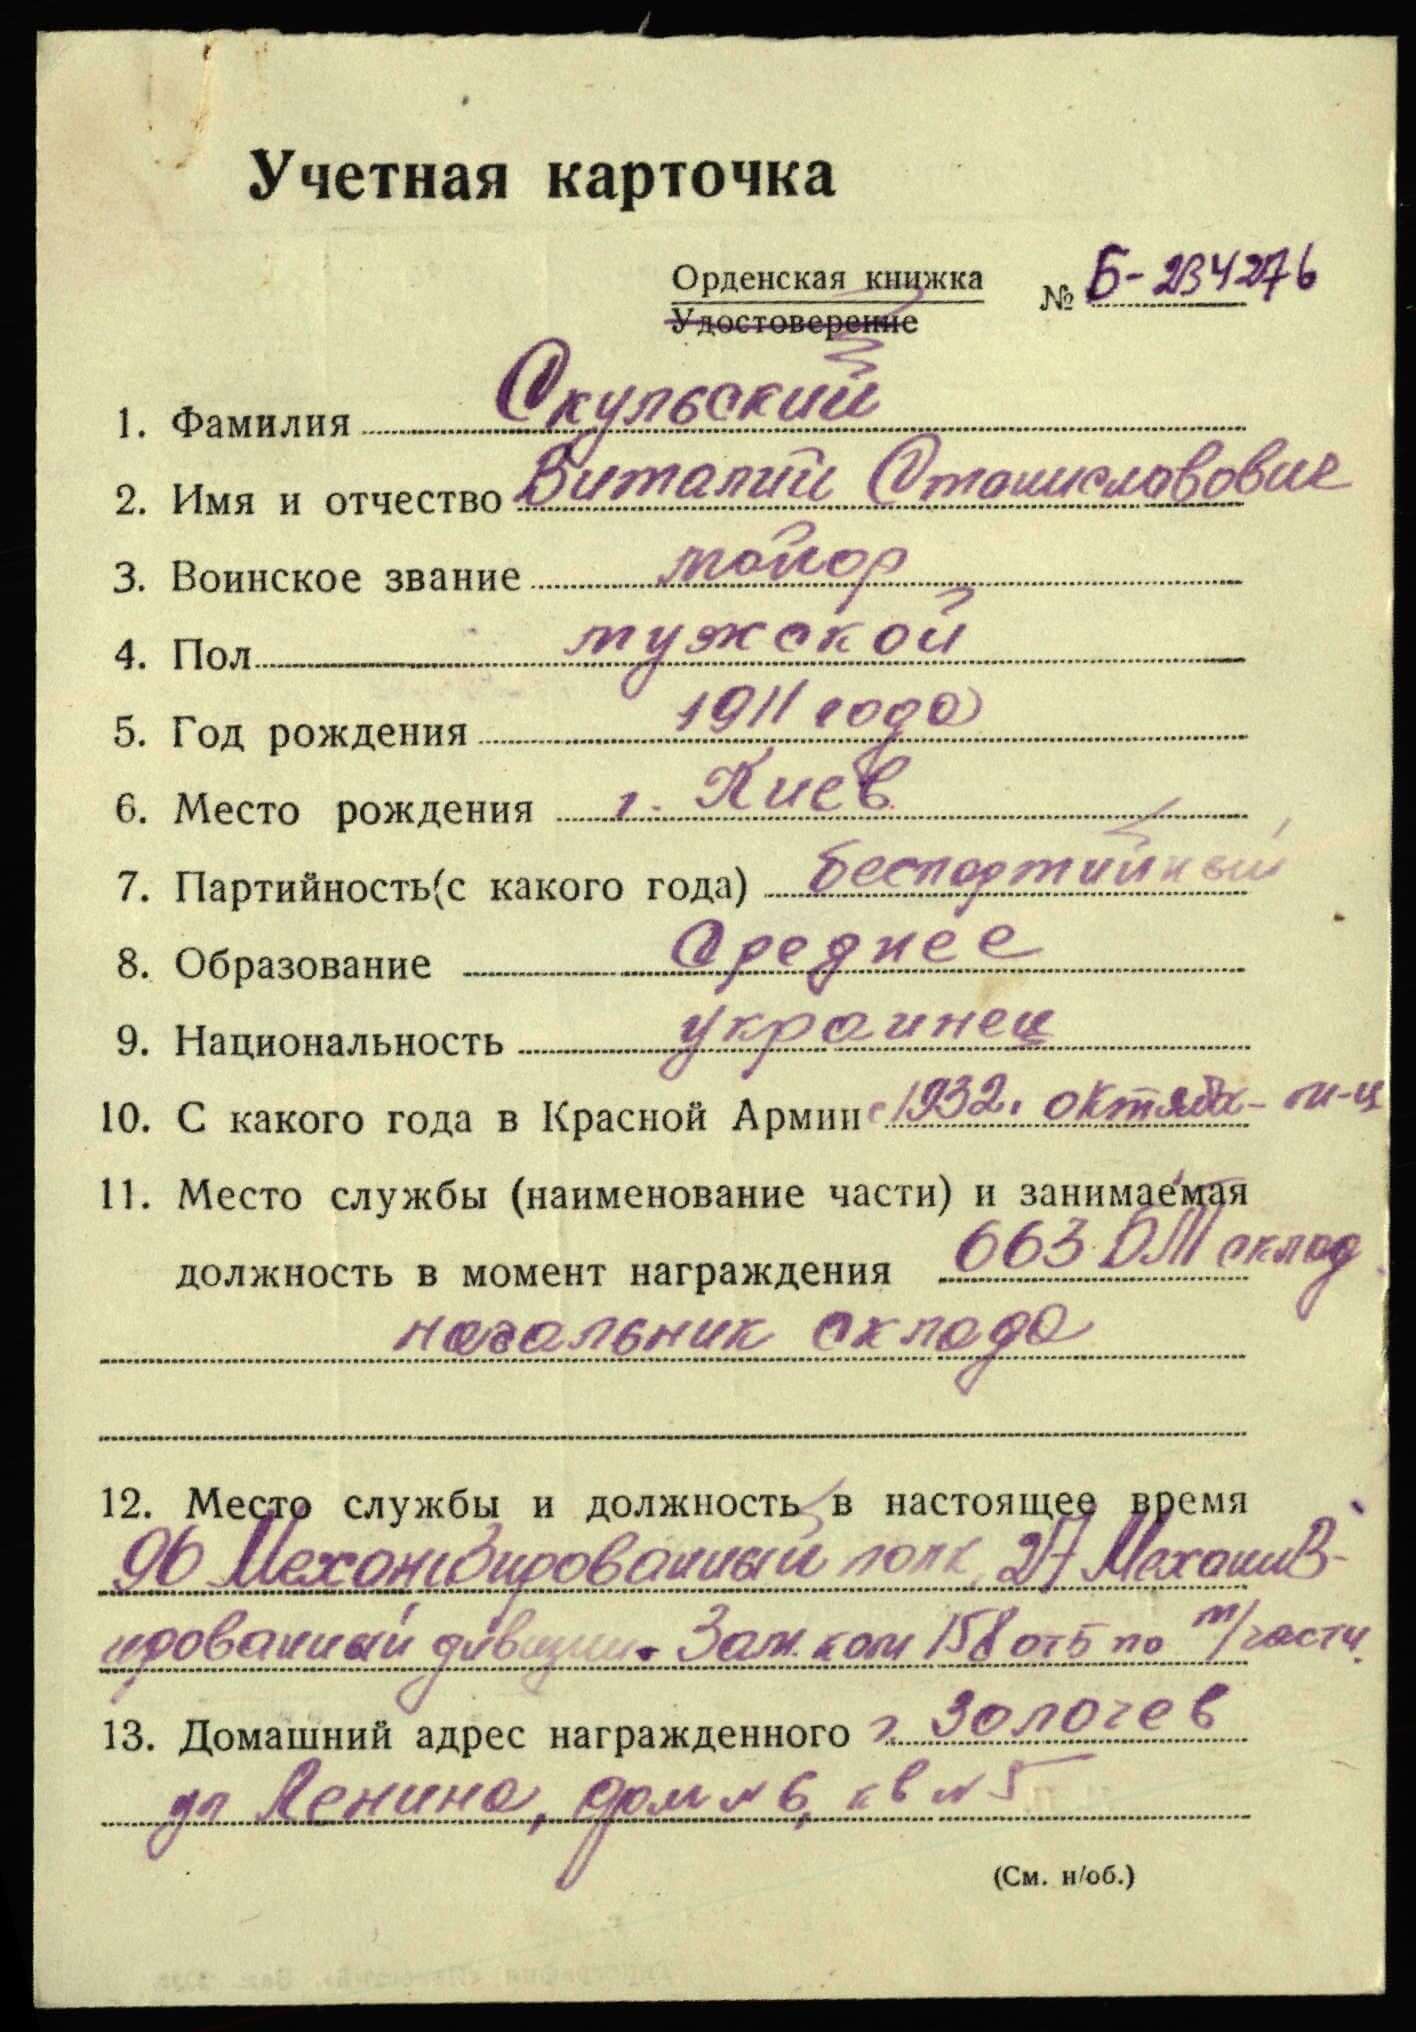 Учетная карточка
Орденская книжка
Удостоверение
№ Б-234276
1. Фамилия Скульский
2. Имя и отчество Виталий Станиславович
3. Воинское звание майор
4. Пол мужской
5. Год рождения 1911 года
6. Место рождения г. Киев
7. Партийность (с какого года) беспартийный
8. Образование Среднее
9. Национальность украинец
10. С какого года в Красной Армии с 1932. октябь- м-ц
11. Место службы (наименование части) и занимаемая
должность в момент награждения 663 склад
начальник склада
12. Место службы и должность в настоящее время
96 Механизированный полк, 27 Механиз-
ированный дивизии. Зам. ком 158 отб по т/части.
13. Домашний адрес награжденного г. Золочев
ул Ленина, дом № 6, кв № 5
(См. н/об.)